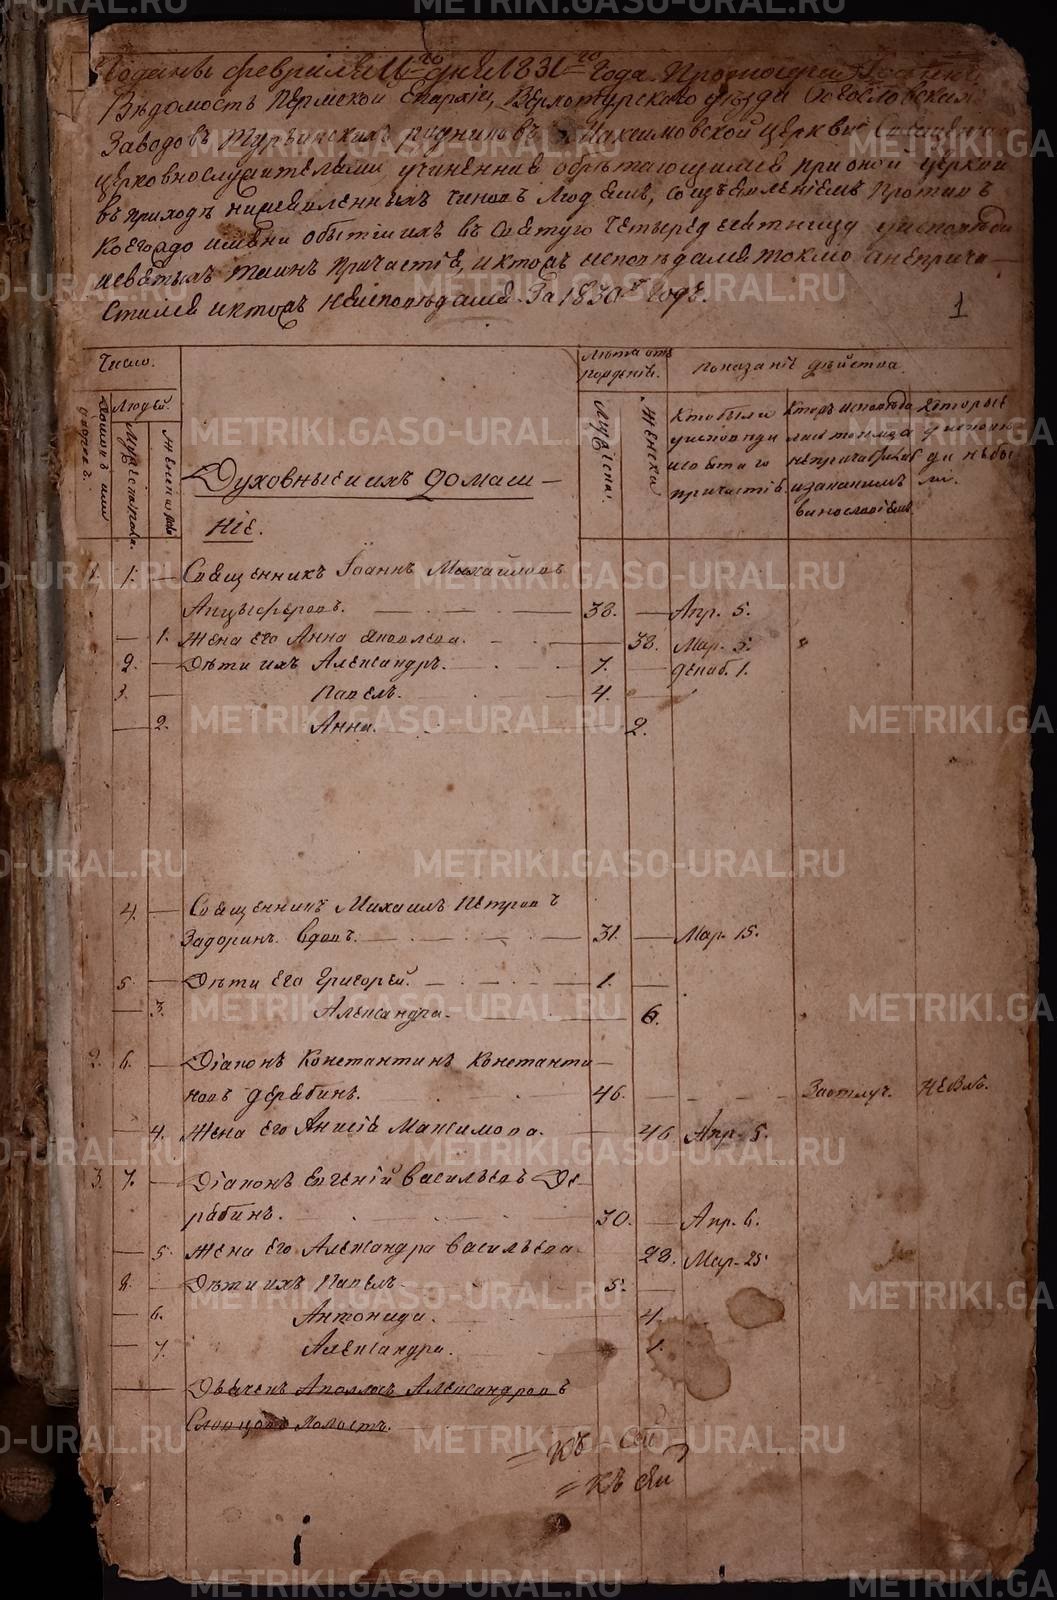 Поданъ февраля 11го дня 1831го года.
Вѣдомость Пермской Епархіи, Верхотурскаго уѣзда Богословскихъ
Заводовъ Турьинскихъ рудниковъ Максимовской церкви Священно
церковнослужителями учиненная обрѣтающимся при оной церкви
въ приходѣ нижеявленныхъ чиновъ Людемъ, со изъявленіемъ противъ
коегождо имени о бытіи ихъ въ Святую Четыредесятницу у исповѣди
и святыхъ таинъ причастія, и ктожъ исповѣдался токмо а не прича-
стился и ктожъ неисповѣдался. За 1830й годъ.
1
Число. Лѣта отъ рожденія. Показаніе дѣйства.
Домовъ или дворовъ. Людей. Мужеска пола. Женска пола
Мужеска. Женска
Кто были у исповѣди и святаго причастія.
Ктожъ исповѣдался токмо а непричастился и за какимъ винословіемъ.
Которые у исповѣди не были.
Духовныя и ихъ домаш-
ніе.
1. 1. — Священникъ Іоаннъ Михайловъ
Анцыферовъ. 38. — Апр. 5.
— 1. Жена его Анна Яковлева. — 38. Мар. 5.
2. — Дѣти ихъ Александръ. 7. — Декаб. 1.
3. — Павелъ. 4. —
— 2. Анна. 2.
4. — Священникъ Михаилъ Петровъ
Задоринъ. Вдовъ. 31. — Мар. 15.
5. — Дѣти его Григорей. 1. —
— 3. Александра. 6.
2. 6. — Діаконъ Константинъ Константи-
новъ Дерябинъ. 46. — Заотлуч. не былъ.
4. Жена его Анисія Максимова. — 46 Апр. 5.
3. 7. — Діаконъ Евгеній Васильевъ Де-
рябинъ. 30. — Апр. 6.
— 5. Жена его Александра Васильева. 28. Мар. 25.
8. — Дѣти ихъ Павелъ 5. —
— 6. Антонида. 4.
— 7. Александра. 1.
— — Дьячекъ Аполлосъ Александровъ
Словцовъ Холостъ.
= Къ сей
= Къ сей
METRIKI.GASO-URAL.RU